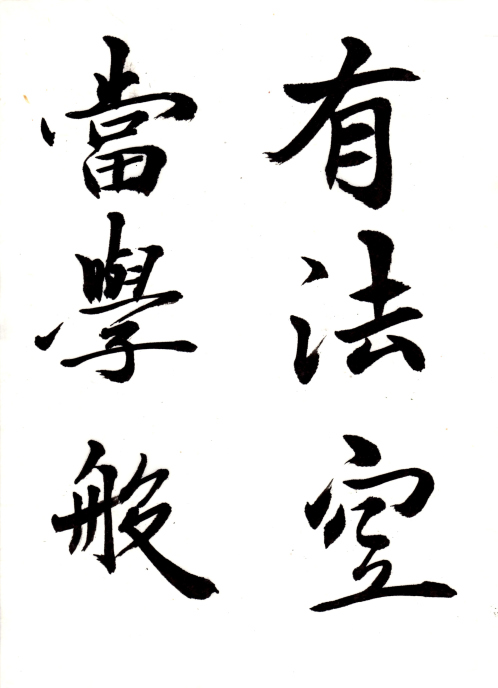 有法空
當學般